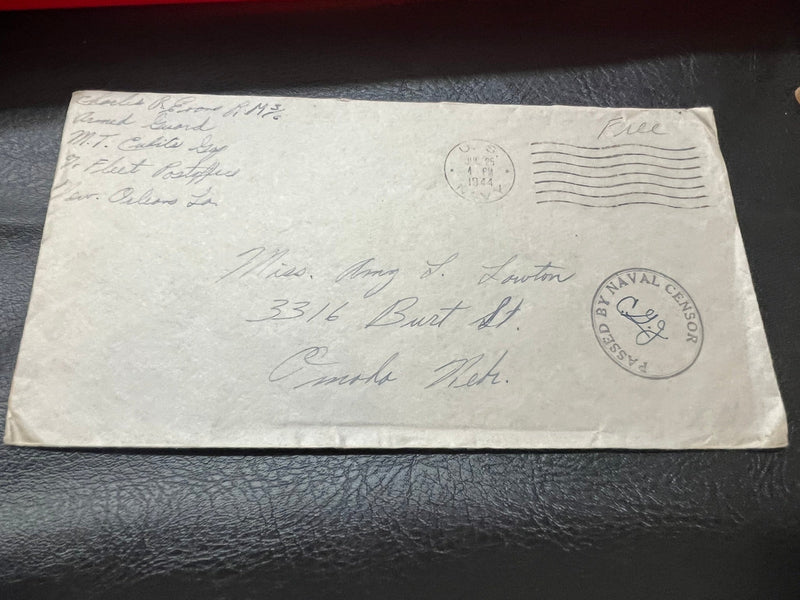 Charles R. Evans R.M 3/c
Armed Guard
M.T.
℅ Fleet Postoffice
New Orleans La.
Free
U.S.
JUL 25
1 PM
1944
NAVY
Miss. Amy L. Lowton
3316 Burt St.
Omaha Nebr.
PASSED BY NAVAL CENSOR